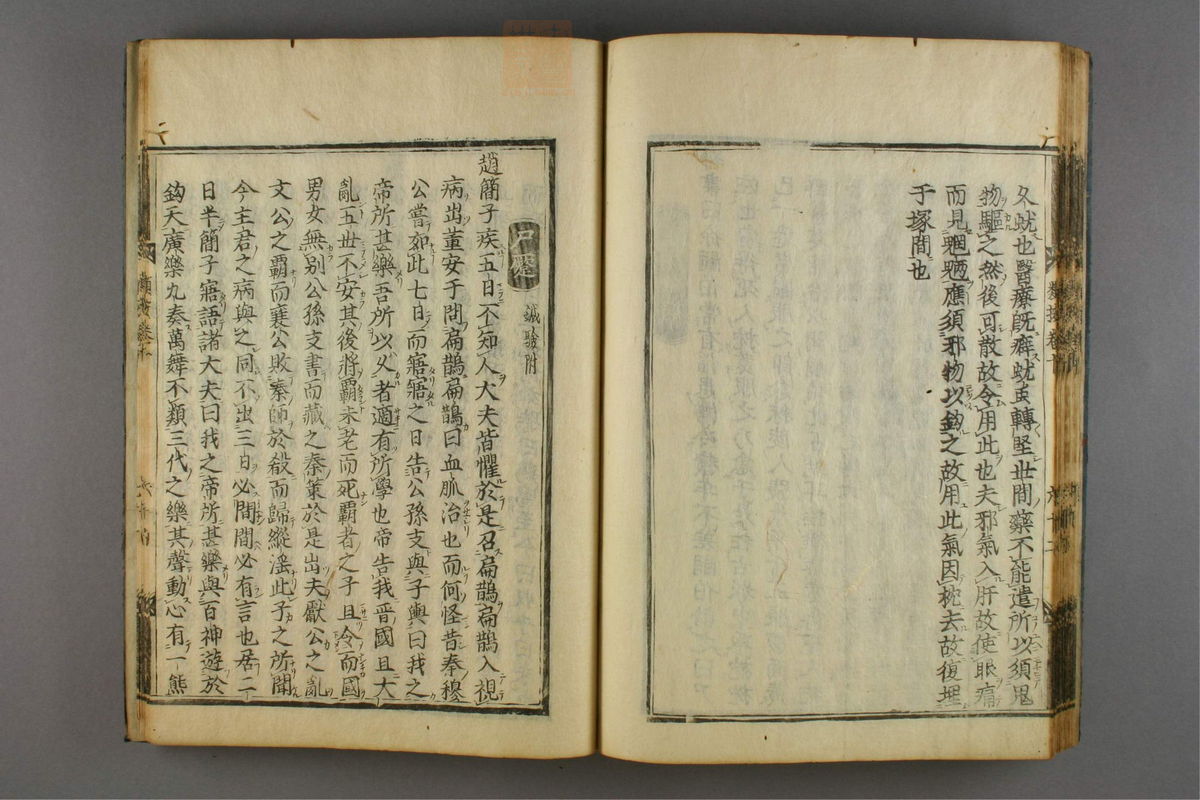 久蚘也醫療旣癖蚘虫轉堅世間藥不能遣所以須鬼
物驅之然後可散故令用此也夫邪氣入肝故使眼痛
而見魍魎應須邪物以鉤之故用此氣因枕去故復埋
于塚間也
尸蹷 鍼驗附
趙簡子疾五日不知人大夫皆懼於是召扁鵲扁鵲入視
病出董安于問扁鵲扁鵲曰血脈治也而何怪昔秦穆
公嘗如此七日而寤寤之日告公孫支與子輿曰我之
帝所甚樂吾所以久者適有所學也帝告我晋國且大
亂五世不安其後將霸未老而死霸者之子且令而國
男女無別公孫支書而藏之秦策於是出夫獻公之亂
文公之霸而襄公敗秦師於殽而歸縱淫此子之所聞
今主君之病與之同不出三日必間間必有言也居二
日半簡子寤語諸大夫曰我之帝所甚樂與百神遊於
鈞天廣樂九奏萬舞不類三代之樂其聲動心有一熊